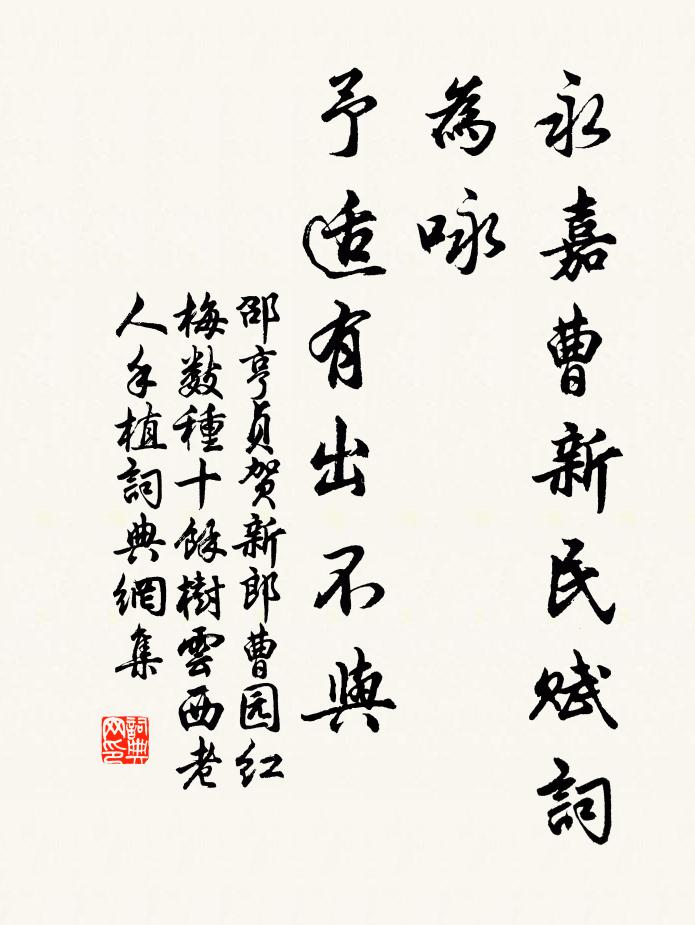 永嘉曹新民賦詞
為咏
予适有出不與
邵亨贞贺新郎曹园红
梅数種十餘樹雲西老
人手植詞典網集
詞典网印